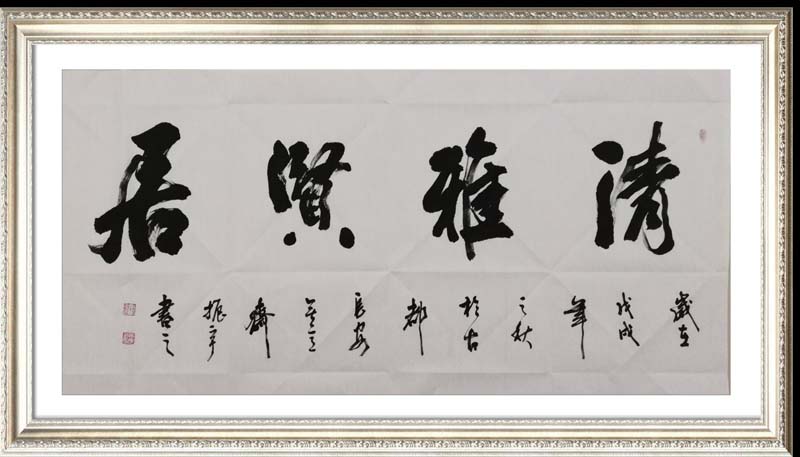 清雅贤居
歲在
戊戌
年
之秋
於古
都
長安
齋
振平
書之